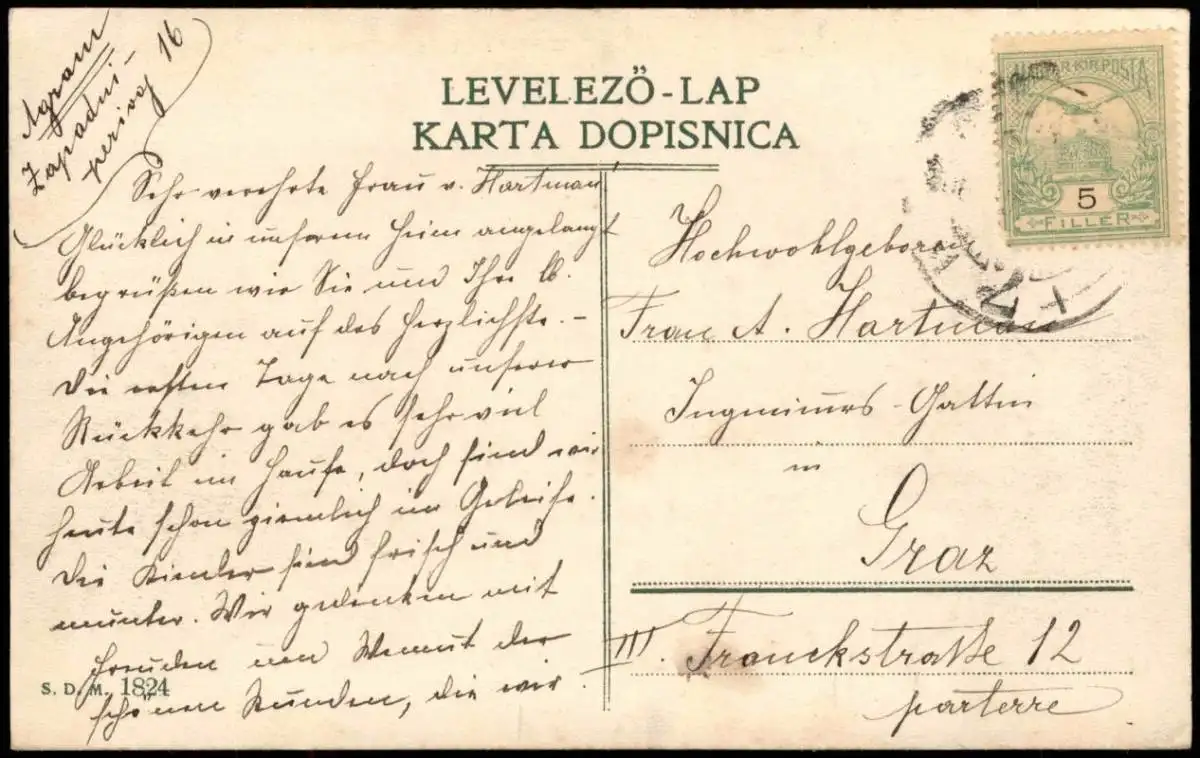 Agram
Zapadni-
perivoj 16
LEVELEZŐ-LAP
KARTA DOPISNICA
MAGYAR KIR. POSTA
5
FILLER
Sehr verehrte Frau v. Hartman
Glücklich in unserem Heim angelangt
begrüßen wir Sie und Ihre lb.
Angehörigen auf das herzlichste. -
Die ersten Tage nach unserer
Rückkehr gab es sehr viel
Arbeit im Hause, doch sind wir
heute schon ziemlich im Geleise.
Die Kinder sind frisch und
munter. Wir gedenken mit
Freuden und Wemut der
schönen Stunden, die wir
Hochwohlgeboren
Frau A. Hartman
Ingenieurs-Gattin
in
Graz
III. Franckstraße 12
parterre
S. D. M. 1824